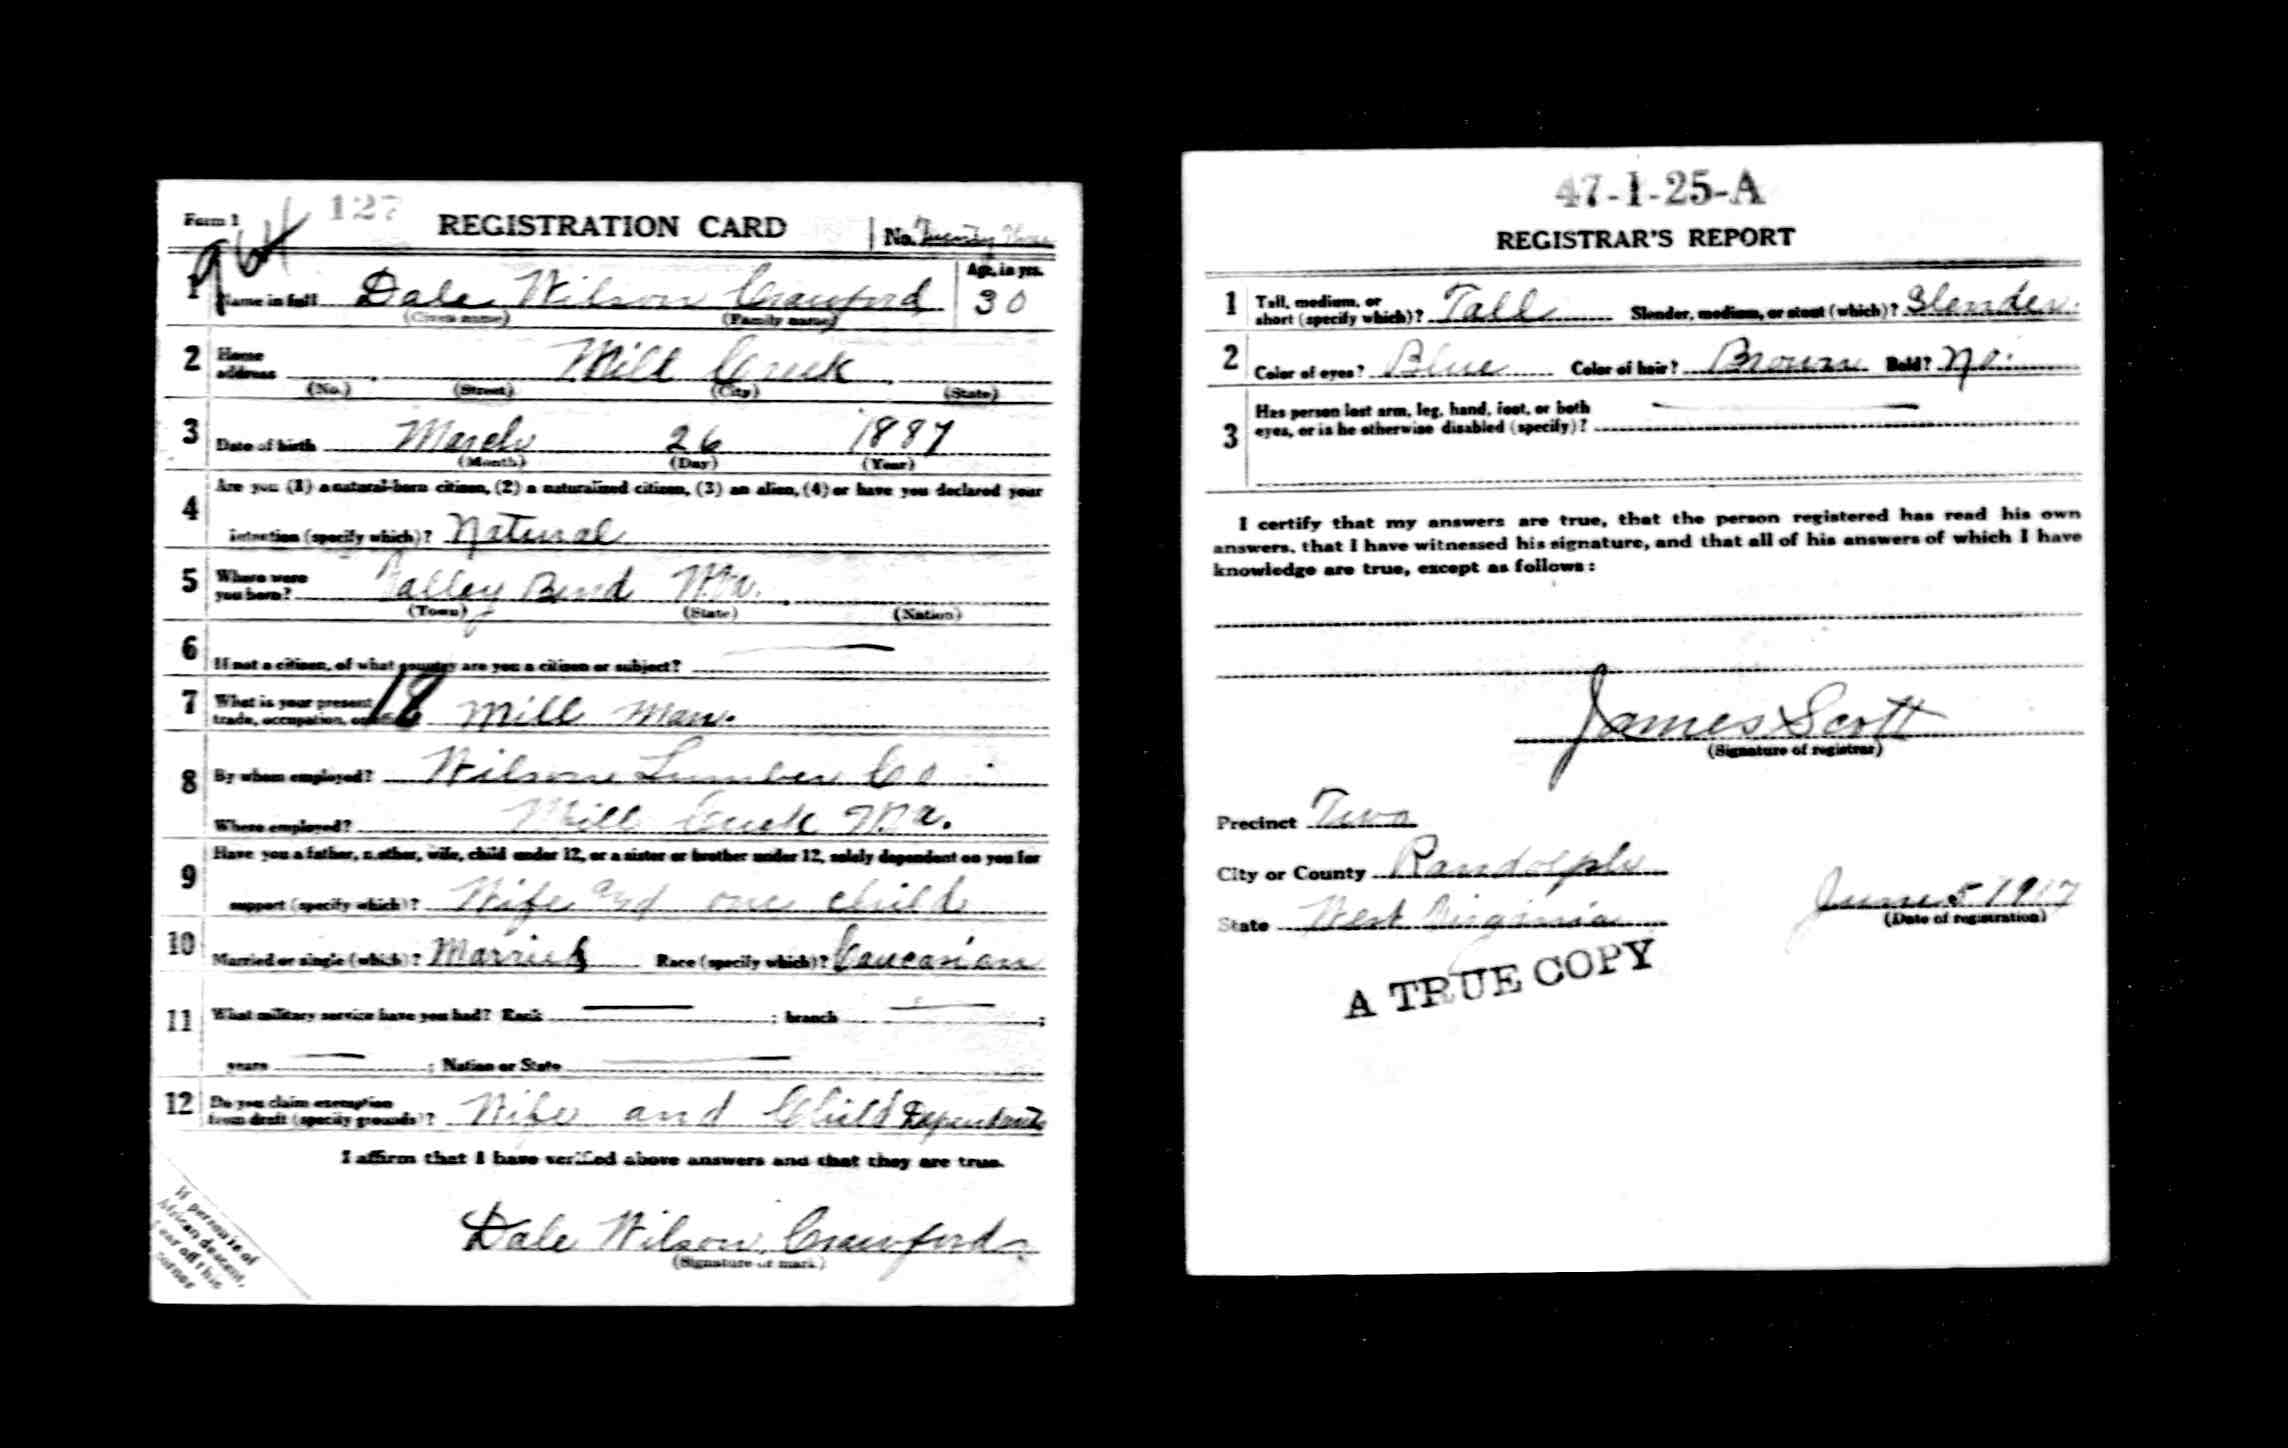 Form 1 127 REGISTRATION CARD No. Twenty Three
964
1 Name in full Dale Wilson Crawford Age, in yrs. 30
(Given name) (Family name)
2 Home address Mill Creek
(No.) (Street) (City) (State)
3 Date of birth March 26 1887
(Month) (Day) (Year)
4 Are you (1) a natural-born citizen, (2) a naturalized citizen, (3) an alien, (4) or have you declared your
intention (specify which)? Natural
5 Where were you born? Valley Bend W.Va.
(Town) (State) (Nation)
6 If not a citizen, of what country are you a citizen or subject?
7 What is your present trade, occupation, or office? 18 Mill Man.
8 By whom employed? Wilson Lumber Co
Where employed? Mill Creek W.Va.
9 Have you a father, mother, wife, child under 12, or a sister or brother under 12, solely dependent on you for
support (specify which)? Wife and one child
10 Married or single (which)? Married Race (specify which)? Caucasian
11 What military service have you had? Rank ; branch ;
years ; Nation or State
12 Do you claim exemption from draft (specify grounds)? Wife and Child Dependents
I affirm that I have verified above answers and that they are true.
Dale Wilson Crawford
(Signature or mark)
If person is of
African descent,
tear off this
corner
47-1-25-A
REGISTRAR'S REPORT
1 Tall, medium, or short (specify which)? Tall Slender, medium, or stout (which)? Slender.
2 Color of eyes? Blue Color of hair? Brown Bald? No.
3 Has person lost arm, leg, hand, foot, or both
eyes, or is he otherwise disabled (specify)?
I certify that my answers are true, that the person registered has read his own
answers, that I have witnessed his signature, and that all of his answers of which I have
knowledge are true, except as follows:
James Scott
(Signature of registrar)
Precinct Two
City or County Randolph
State West Virginia June 5 1917
(Date of registration)
A TRUE COPY